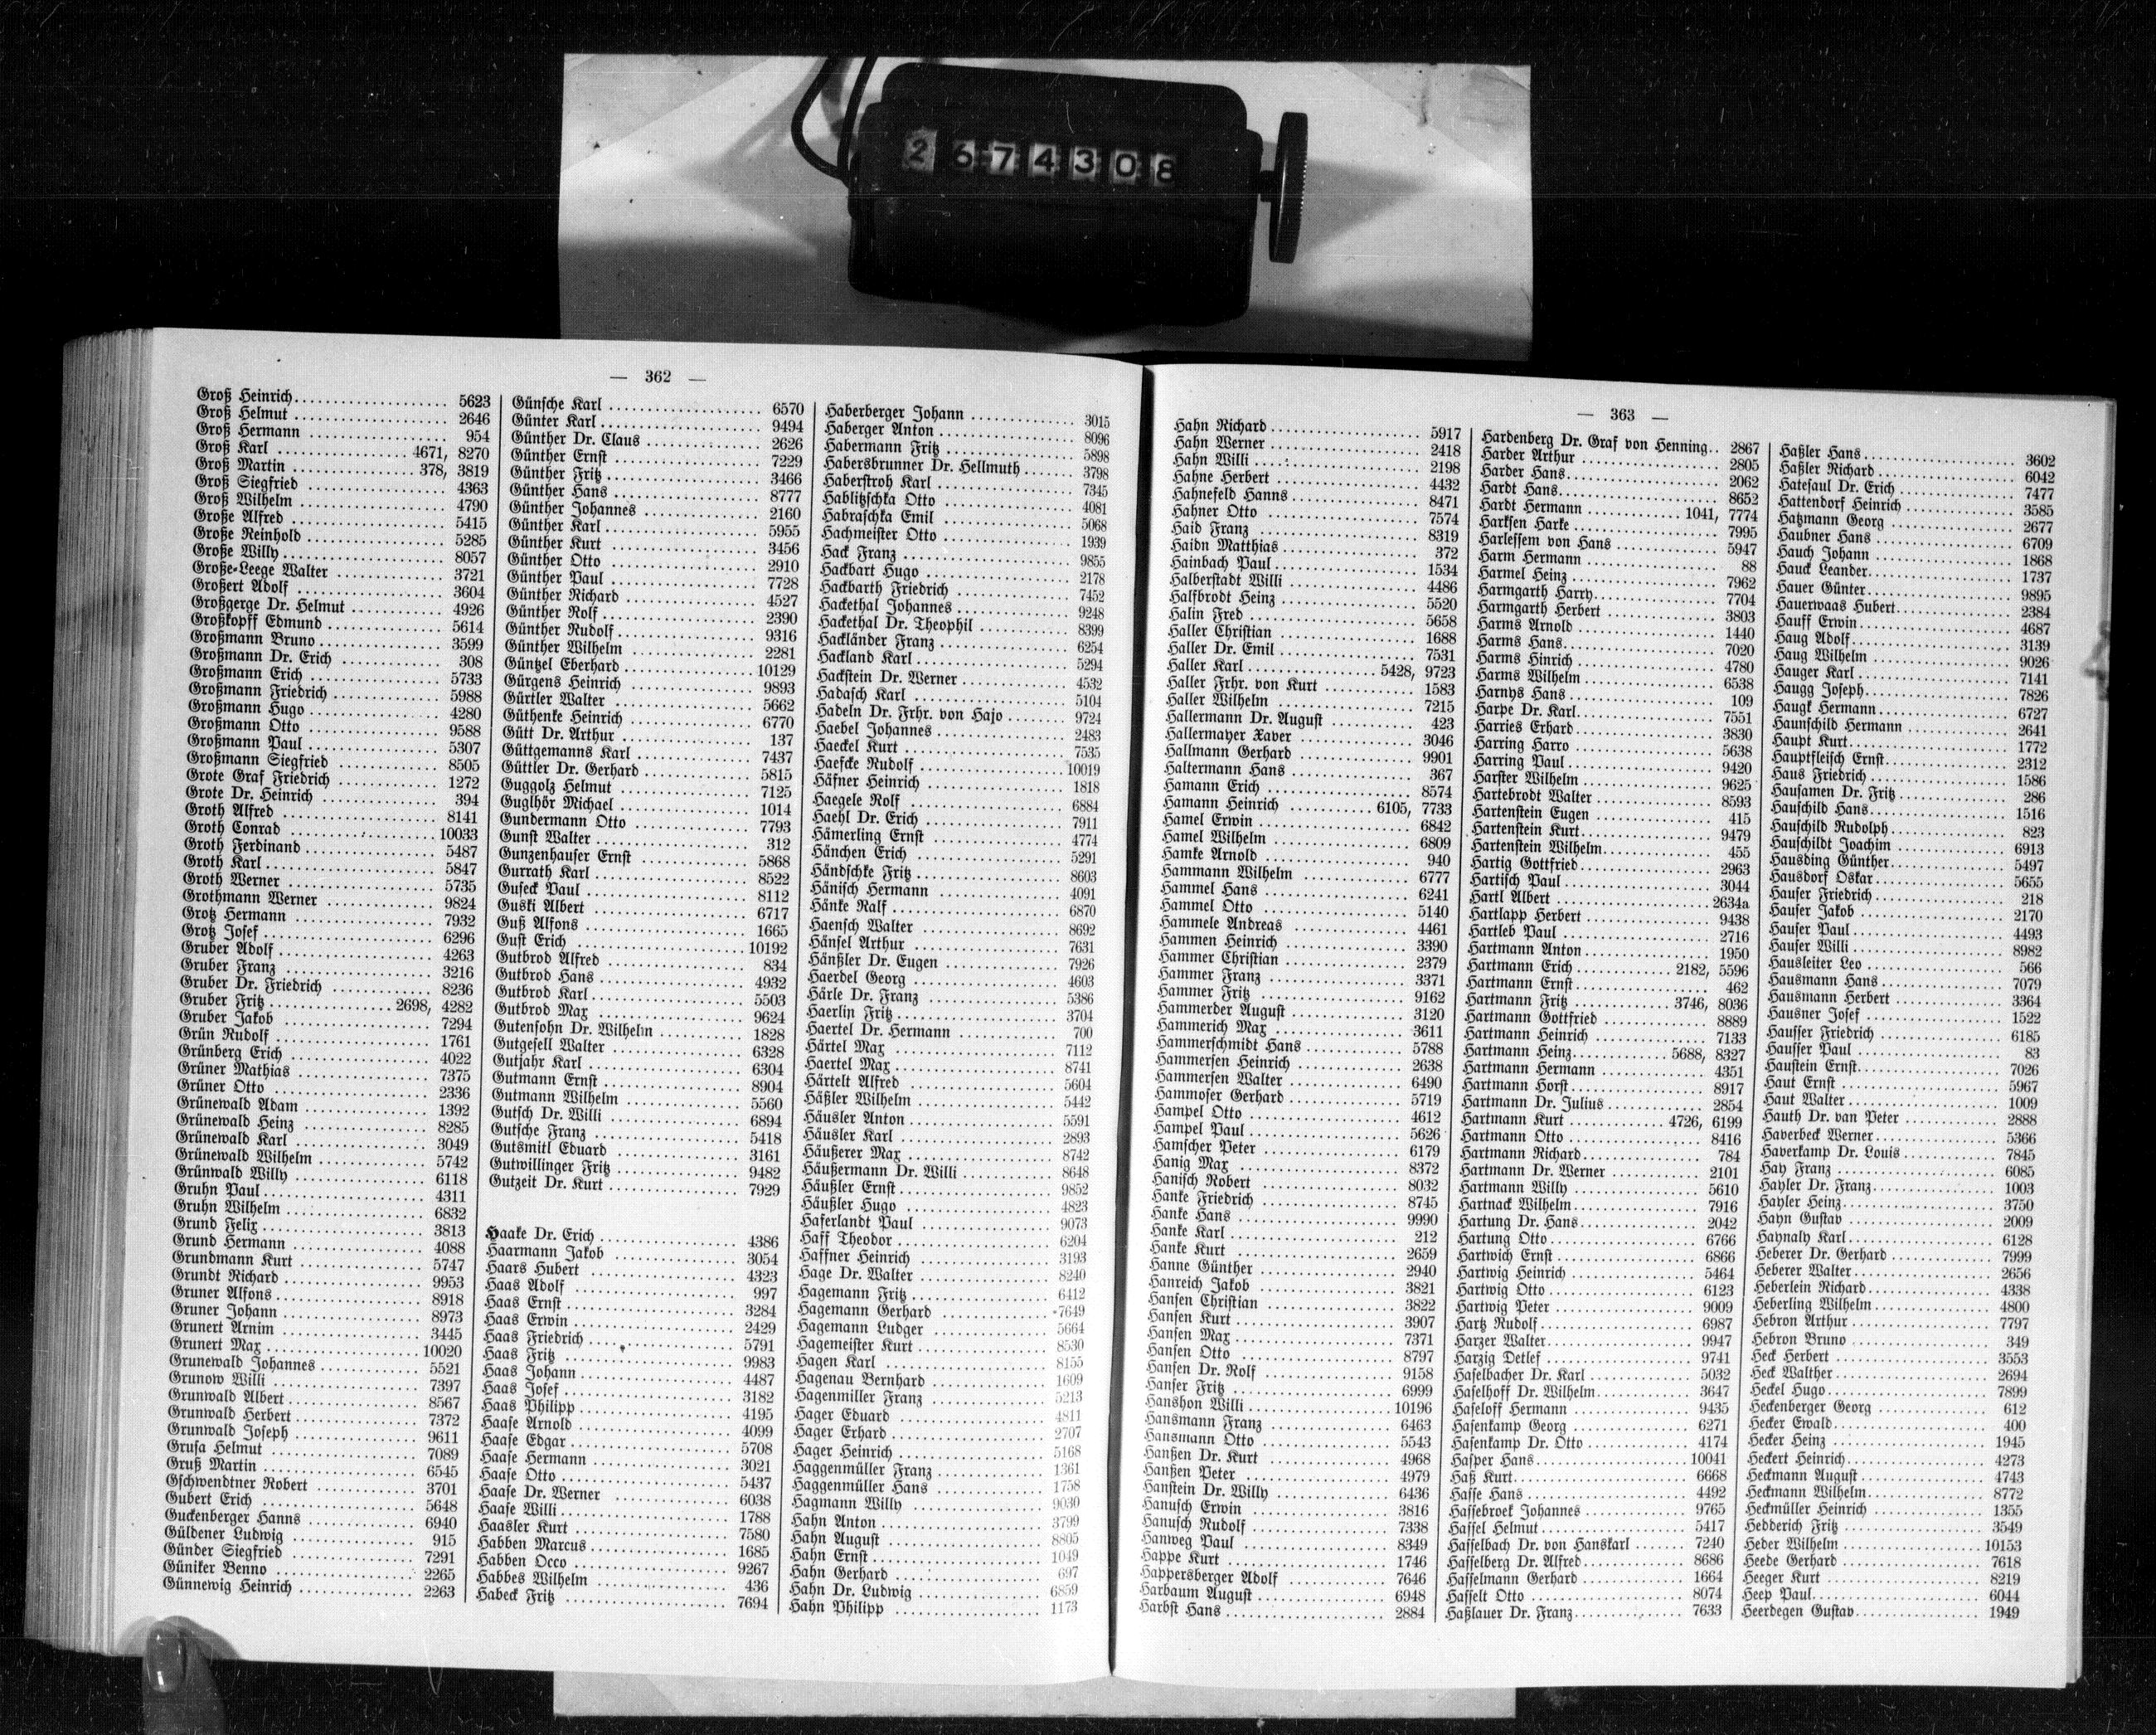 2674308
— 362 —
Groß Heinrich 5623
Groß Helmut 2646
Groß Hermann 954
Groß Karl 4671, 8270
Groß Martin 378, 3819
Groß Siegfried 4363
Groß Wilhelm 4790
Große Alfred 5415
Große Reinhold 5285
Große Willy 8057
Große-Leege Walter 3721
Großert Adolf 3604
Großgerge Dr. Helmut 4926
Großkopff Edmund 5614
Großmann Bruno 3599
Großmann Dr. Erich 308
Großmann Erich 5733
Großmann Friedrich 5988
Großmann Hugo 4280
Großmann Otto 9588
Großmann Paul 5307
Großmann Siegfried 8505
Grote Graf Friedrich 1272
Grote Dr. Heinrich 394
Groth Alfred 8141
Groth Conrad 10033
Groth Ferdinand 5487
Groth Karl 5847
Groth Werner 5735
Grothmann Werner 9824
Grotz Hermann 7932
Grotz Josef 6296
Gruber Adolf 4263
Gruber Franz 3216
Gruber Dr. Friedrich 8236
Gruber Fritz 2698, 4282
Gruber Jakob 7294
Grün Rudolf 1761
Grünberg Erich 4022
Grüner Mathias 7375
Grüner Otto 2336
Grünewald Adam 1392
Grünewald Heinz 8285
Grünewald Karl 3049
Grünewald Wilhelm 5742
Grünwald Willy 6118
Gruhn Paul 4311
Gruhn Wilhelm 6832
Grund Felix 3813
Grund Hermann 4088
Grundmann Kurt 5747
Grundt Richard 9953
Gruner Alfons 8918
Gruner Johann 8973
Grunert Arnim 3445
Grunert Max 10020
Grunewald Johannes 5521
Grunow Willi 7397
Grunwald Albert 8567
Grunwald Herbert 7372
Grunwald Joseph 9611
Grusa Helmut 7089
Gruß Martin 6545
Gschwendtner Robert 3701
Gubert Erich 5648
Guckenberger Hanns 6940
Güldener Ludwig 915
Günder Siegfried 7291
Güniker Benno 2265
Günnewig Heinrich 2263
Günsche Karl 6570
Günter Karl 9494
Günther Dr. Claus 2626
Günther Ernst 7229
Günther Fritz 3466
Günther Hans 8777
Günther Johannes 2160
Günther Karl 5955
Günther Kurt 3456
Günther Otto 2910
Günther Paul 7728
Günther Richard 4527
Günther Rolf 2390
Günther Rudolf 9316
Günther Wilhelm 2281
Güntzel Eberhard 10129
Gürgens Heinrich 9893
Gürtler Walter 5662
Güthenke Heinrich 6770
Gütt Dr. Arthur 137
Güttgemanns Karl 7437
Güttler Dr. Gerhard 5815
Guggolz Helmut 7125
Guglhör Michael 1014
Gundermann Otto 7793
Gunst Walter 312
Gunzenhauser Ernst 5868
Gurrath Karl 8522
Guseck Paul 8112
Guski Albert 6717
Guß Alfons 1665
Gust Erich 10192
Gutbrod Alfred 834
Gutbrod Hans 4932
Gutbrod Karl 5503
Gutbrod Max 9624
Gutensohn Dr. Wilhelm 1828
Gutgesell Walter 6328
Gutjahr Karl 6304
Gutmann Ernst 8904
Gutmann Wilhelm 5560
Gutsch Dr. Willi 6894
Gutsche Franz 5418
Gutsmitl Eduard 3161
Gutwillinger Fritz 9482
Gutzeit Dr. Kurt 7929
Haake Dr. Erich 4386
Haarmann Jakob 3054
Haars Hubert 4323
Haas Adolf 997
Haas Ernst 3284
Haas Erwin 2429
Haas Friedrich 5791
Haas Fritz 9983
Haas Johann 4487
Haas Josef 3182
Haas Philipp 4195
Haase Arnold 4099
Haase Edgar 5708
Haase Hermann 3021
Haase Otto 5437
Haase Dr. Werner 6038
Haase Willi 1788
Haasler Kurt 7580
Habben Marcus 1685
Habben Occo 9267
Habbes Wilhelm 436
Habeck Fritz 7694
Haberberger Johann 3015
Haberger Anton 8096
Habermann Fritz 5898
Habersbrunner Dr. Hellmuth 3798
Haberstroh Karl 7345
Hablitzschka Otto 4081
Habraschka Emil 5068
Hachmeister Otto 1939
Hack Franz 9855
Hackbart Hugo 2178
Hackbarth Friedrich 7452
Hackethal Johannes 9248
Hackethal Dr. Theophil 8399
Hackländer Franz 6254
Hackland Karl 5294
Hackstein Dr. Werner 4532
Hadasch Karl 5104
Hadeln Dr. Frhr. von Hajo 9724
Haebel Johannes 2483
Haeckel Kurt 7535
Haefcke Rudolf 10019
Häfner Heinrich 1818
Haegele Rolf 6884
Haehl Dr. Erich 7911
Hämerling Ernst 4774
Hänchen Erich 5291
Händschke Fritz 8603
Hänisch Hermann 4091
Hänke Ralf 6870
Haensch Walter 8692
Hänsel Arthur 7631
Hänßler Dr. Eugen 7926
Haerdel Georg 4603
Härle Dr. Franz 5386
Haerlin Fritz 3704
Haertel Dr. Hermann 700
Härtel Max 7112
Haertel Max 8741
Härtelt Alfred 5604
Häßler Wilhelm 5442
Häusler Anton 5591
Häusler Karl 2893
Häußerer Max 8742
Häußermann Dr. Willi 8648
Häußler Ernst 9852
Häußler Hugo 4823
Haferlandt Paul 9073
Haff Theodor 6204
Haffner Heinrich 3193
Hage Dr. Walter 8240
Hagemann Fritz 6412
Hagemann Gerhard 7649
Hagemann Ludger 5664
Hagemeister Kurt 8530
Hagen Karl 8155
Hagenau Bernhard 1609
Hagenmiller Franz 5213
Hager Eduard 4811
Hager Erhard 2707
Hager Heinrich 5168
Haggenmüller Franz 1361
Haggenmüller Hans 1758
Hagmann Willy 9030
Hahn Anton 3799
Hahn August 8805
Hahn Ernst 1049
Hahn Gerhard 697
Hahn Dr. Ludwig 6859
Hahn Philipp 1173
— 363 —
Hahn Richard 5917
Hahn Werner 2418
Hahn Willi 2198
Hahne Herbert 4432
Hahnefeld Hanns 8471
Hahner Otto 7574
Haid Franz 8319
Haidn Matthias 372
Hainbach Paul 1534
Halberstadt Willi 4486
Halfbrodt Heinz 5520
Halin Fred 5658
Haller Christian 1688
Haller Dr. Emil 7531
Haller Karl 5428, 9723
Haller Frhr. von Kurt 1583
Haller Wilhelm 7215
Hallermann Dr. August 423
Hallermayer Xaver 3046
Hallmann Gerhard 9901
Haltermann Hans 367
Hamann Erich 8574
Hamann Heinrich 6105, 7733
Hamel Erwin 6842
Hamel Wilhelm 6809
Hamke Arnold 940
Hammann Wilhelm 6777
Hammel Hans 6241
Hammel Otto 5140
Hammele Andreas 4461
Hammen Heinrich 3390
Hammer Christian 2379
Hammer Franz 3371
Hammer Fritz 9162
Hammerder August 3120
Hammerich Max 3611
Hammerschmidt Hans 5788
Hammersen Heinrich 2638
Hammersen Walter 6490
Hammoser Gerhard 5719
Hampel Otto 4612
Hampel Paul 5626
Hamscher Peter 6179
Hanig Max 8372
Hanisch Robert 8032
Hanke Friedrich 8745
Hanke Hans 9990
Hanke Karl 212
Hanke Kurt 2659
Hanne Günther 2940
Hanreich Jakob 3821
Hansen Christian 3822
Hansen Kurt 3907
Hansen Max 7371
Hansen Otto 8797
Hansen Dr. Rolf 9158
Hanser Fritz 6999
Hanshon Willi 10196
Hansmann Franz 6463
Hansmann Otto 5543
Hanßen Dr. Kurt 4968
Hanßen Peter 4979
Hanstein Dr. Willy 6436
Hanusch Erwin 3816
Hanusch Rudolf 7338
Hanweg Paul 8349
Happe Kurt 1746
Happersberger Adolf 7646
Harbaum August 6948
Harbst Hans 2884
Hardenberg Dr. Graf von Henning 2867
Harder Arthur 2805
Harder Hans 2062
Hardt Hans 8652
Hardt Hermann 1041, 7774
Harksen Harke 7995
Harlessem von Hans 5947
Harm Hermann 88
Harmel Heinz 7962
Harmgarth Harry 7704
Harmgarth Herbert 3803
Harms Arnold 1440
Harms Hans 7020
Harms Hinrich 4780
Harms Wilhelm 6538
Harnys Hans 109
Harpe Dr. Karl 7551
Harries Erhard 3830
Harring Harro 5638
Harring Paul 9420
Harster Wilhelm 9625
Hartebrodt Walter 8593
Hartenstein Eugen 415
Hartenstein Kurt 9479
Hartenstein Wilhelm 455
Hartig Gottfried 2963
Hartisch Paul 3044
Hartl Albert 2634a
Hartlapp Herbert 9438
Hartleb Paul 2716
Hartmann Anton 1950
Hartmann Erich 2182, 5596
Hartmann Ernst 462
Hartmann Fritz 3746, 8036
Hartmann Gottfried 8889
Hartmann Heinrich 7133
Hartmann Heinz 5688, 8327
Hartmann Hermann 4351
Hartmann Horst 8917
Hartmann Dr. Julius 2854
Hartmann Kurt 4726, 6199
Hartmann Otto 8416
Hartmann Richard 784
Hartmann Dr. Werner 2101
Hartmann Willy 5610
Hartnack Wilhelm 7916
Hartung Dr. Hans 2042
Hartung Otto 6766
Hartwich Ernst 6866
Hartwig Heinrich 5464
Hartwig Otto 6123
Hartwig Peter 9009
Hartz Rudolf 6987
Harzer Walter 9947
Harzig Detlef 9741
Haselbacher Dr. Karl 5032
Haselhoff Dr. Wilhelm 3647
Haseloff Hermann 9435
Hasenkamp Georg 6271
Hasenkamp Dr. Otto 4174
Hasper Hans 10041
Haß Kurt 6668
Hasse Hans 4492
Hassebroek Johannes 9765
Hassel Helmut 5417
Hasselbach Dr. von Hanskarl 7240
Hasselberg Dr. Alfred 8686
Hasselmann Gerhard 1664
Hasselt Otto 8074
Haßlauer Dr. Franz 7633
Haßler Hans 3602
Haßler Richard 6042
Hatesaul Dr. Erich 7477
Hattendorf Heinrich 3585
Hatzmann Georg 2677
Haubner Hans 6709
Hauch Johann 1868
Hauck Leander 1737
Hauer Günter 9895
Hauerwaas Hubert 2384
Hauff Erwin 4687
Haug Adolf 3139
Haug Wilhelm 9026
Hauger Karl 7141
Haugg Joseph 7826
Haugk Hermann 6727
Haunschild Hermann 2641
Haupt Kurt 1772
Hauptfleisch Ernst 2312
Haus Friedrich 1586
Hausamen Dr. Fritz 286
Hauschild Hans 1516
Hauschild Rudolph 823
Hauschildt Joachim 6913
Hausding Günther 5497
Hausdorf Oskar 5655
Hauser Friedrich 218
Hauser Jakob 2170
Hauser Paul 4493
Hauser Willi 8982
Hausleiter Leo 566
Hausmann Hans 7079
Hausmann Herbert 3364
Hausner Josef 1522
Hausser Friedrich 6185
Hausser Paul 83
Haustein Ernst 7026
Haut Ernst 5967
Haut Walter 1009
Hauth Dr. van Peter 2888
Haverbeck Werner 5366
Haverkamp Dr. Louis 7845
Hay Franz 6085
Hayler Dr. Franz 1003
Hayler Heinz 3750
Hayn Gustav 2009
Haynaly Karl 6128
Heberer Dr. Gerhard 7999
Heberer Walter 2656
Heberlein Richard 4338
Heberling Wilhelm 4800
Hebron Arthur 7797
Hebron Bruno 349
Heck Herbert 3553
Heck Walther 2694
Heckel Hugo 7899
Heckenberger Georg 612
Hecker Ewald 400
Hecker Heinz 1945
Heckert Heinrich 4273
Heckmann August 4743
Heckmann Wilhelm 8772
Heckmüller Heinrich 1355
Hedderich Fritz 3549
Heder Wilhelm 10153
Heede Gerhard 7618
Heeger Kurt 8219
Heep Paul 6044
Heerdegen Gustav 1949